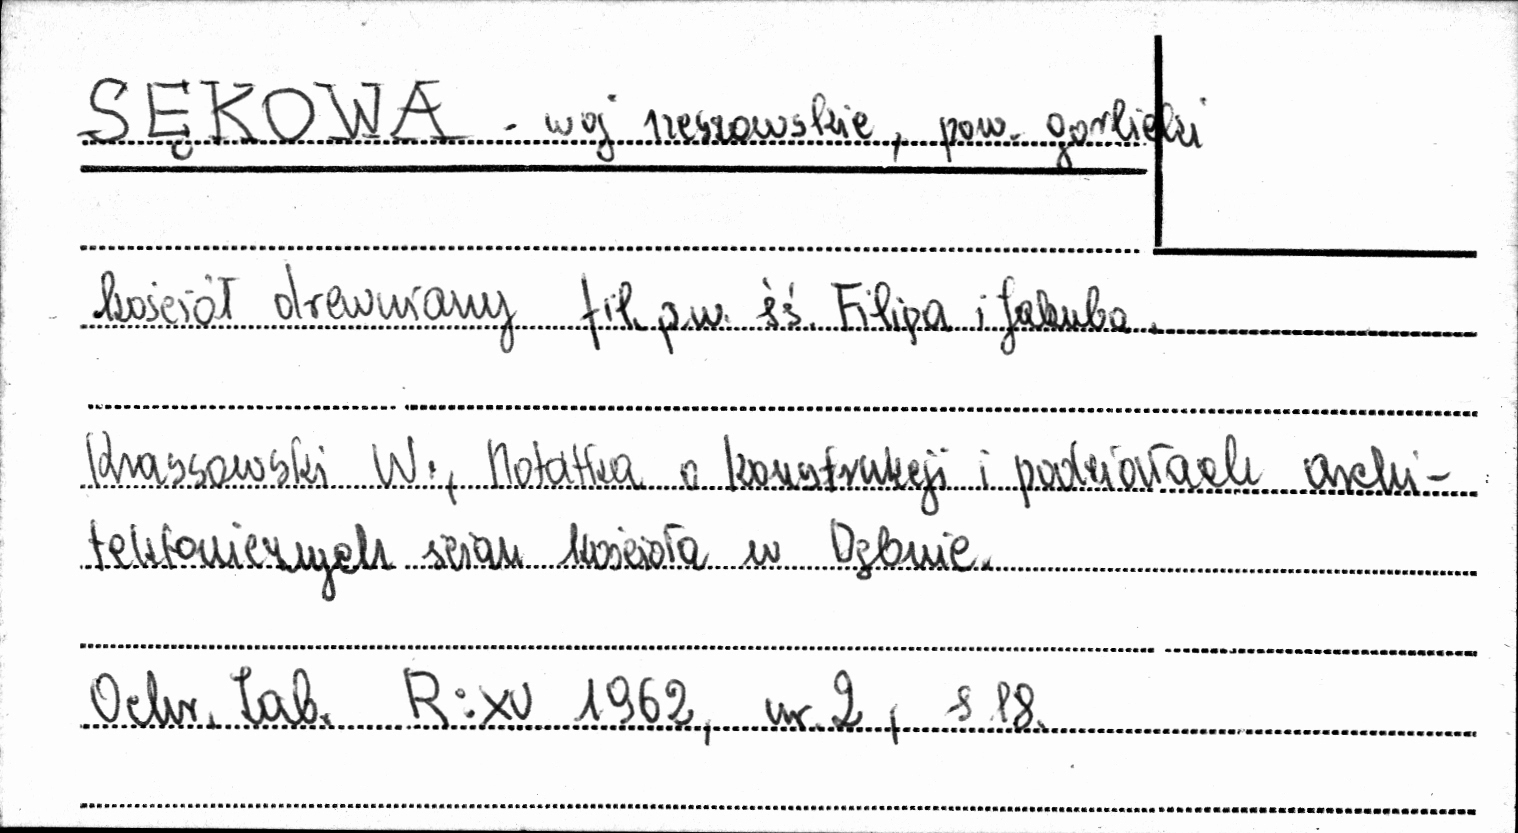 SĘKOWA - woj rzeszowskie, pow. gorlicki
kościół drewniany fil. p.w. śś. Filipa i Jakuba.
Krassowski W., Notatka o konstrukcji i podziałach archi-
tektonicznych ścian kościoła w Dębnie.
Ochr. Zab. R: XV 1962, nr. 2, s 18.